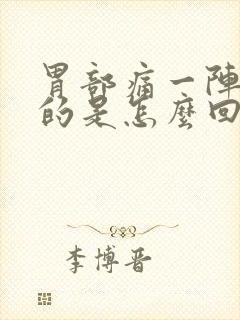 胃部痛一陣
的是怎麼回
李博晋